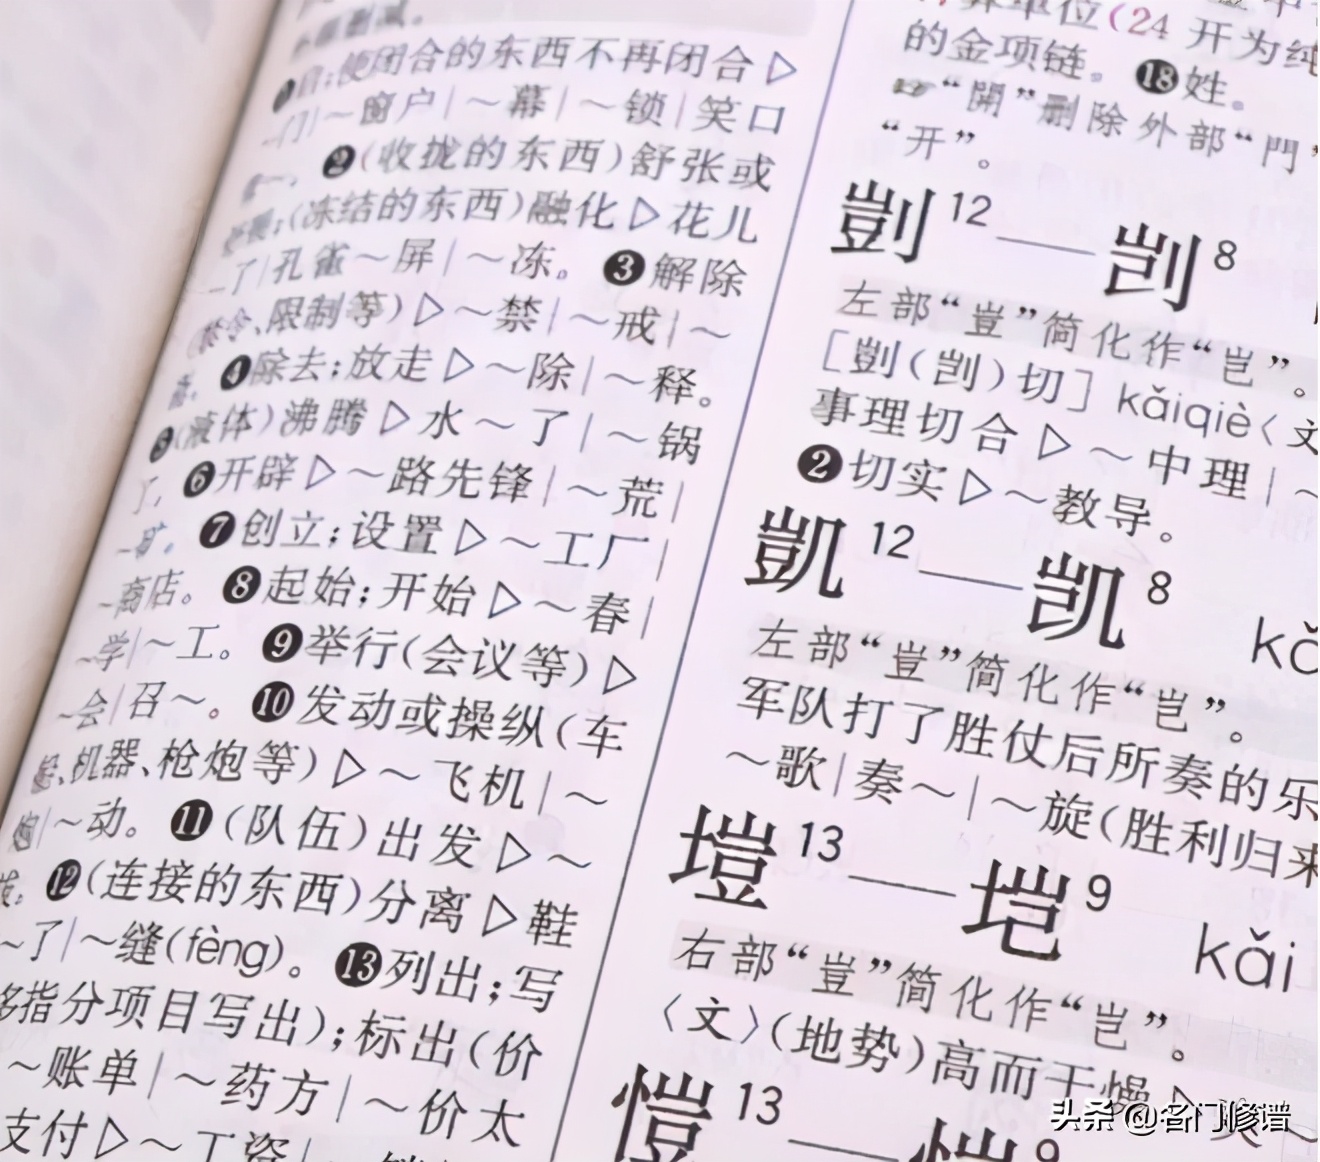 启；使闭合的东西不再闭合▷
～窗户|～幕|～锁|笑口
❷(收拢的东西)舒张或
(冻结的东西)融化▷花儿
～了|孔雀～屏|～冻。❸解除
限制等)▷～禁|～戒|～
❹除去；放走▷～除|～释。
❺(液体)沸腾▷水～了|～锅
了。❻开辟▷～路先锋|～荒|
～矿。❼创立；设置▷～工厂|
～商店。❽起始；开始▷～春|
～学|～工。❾举行(会议等)▷
～会|召～。❿发动或操纵(车
船、机器、枪炮等)▷～飞机|～
炮|～动。⓫(队伍)出发▷～
拔。⓬(连接的东西)分离▷鞋
～了|～缝(fèng)。⓭列出；写
多指分项目写出)；标出(价
～账单|～药方|～价太
支付▷～工资
算单位(24 开为纯
的金项链。⓲姓。
☞“開”删除外部“門”
“开”。
剴12—剀8
左部“豈”简化作“岂”。
[剴(剀)切] kǎiqiè〈文
事理切合▷～中理|～
❷切实▷～教导。
凱12—凯8 kǎ
左部“豈”简化作“岂”。
军队打了胜仗后所奏的乐
～歌|奏～|～旋(胜利归来
塏13—垲9 kǎi
右部“豈”简化作“岂”。
〈文〉(地势)高而干燥▷爽～
愷13—恺9
头条 @名门修谱